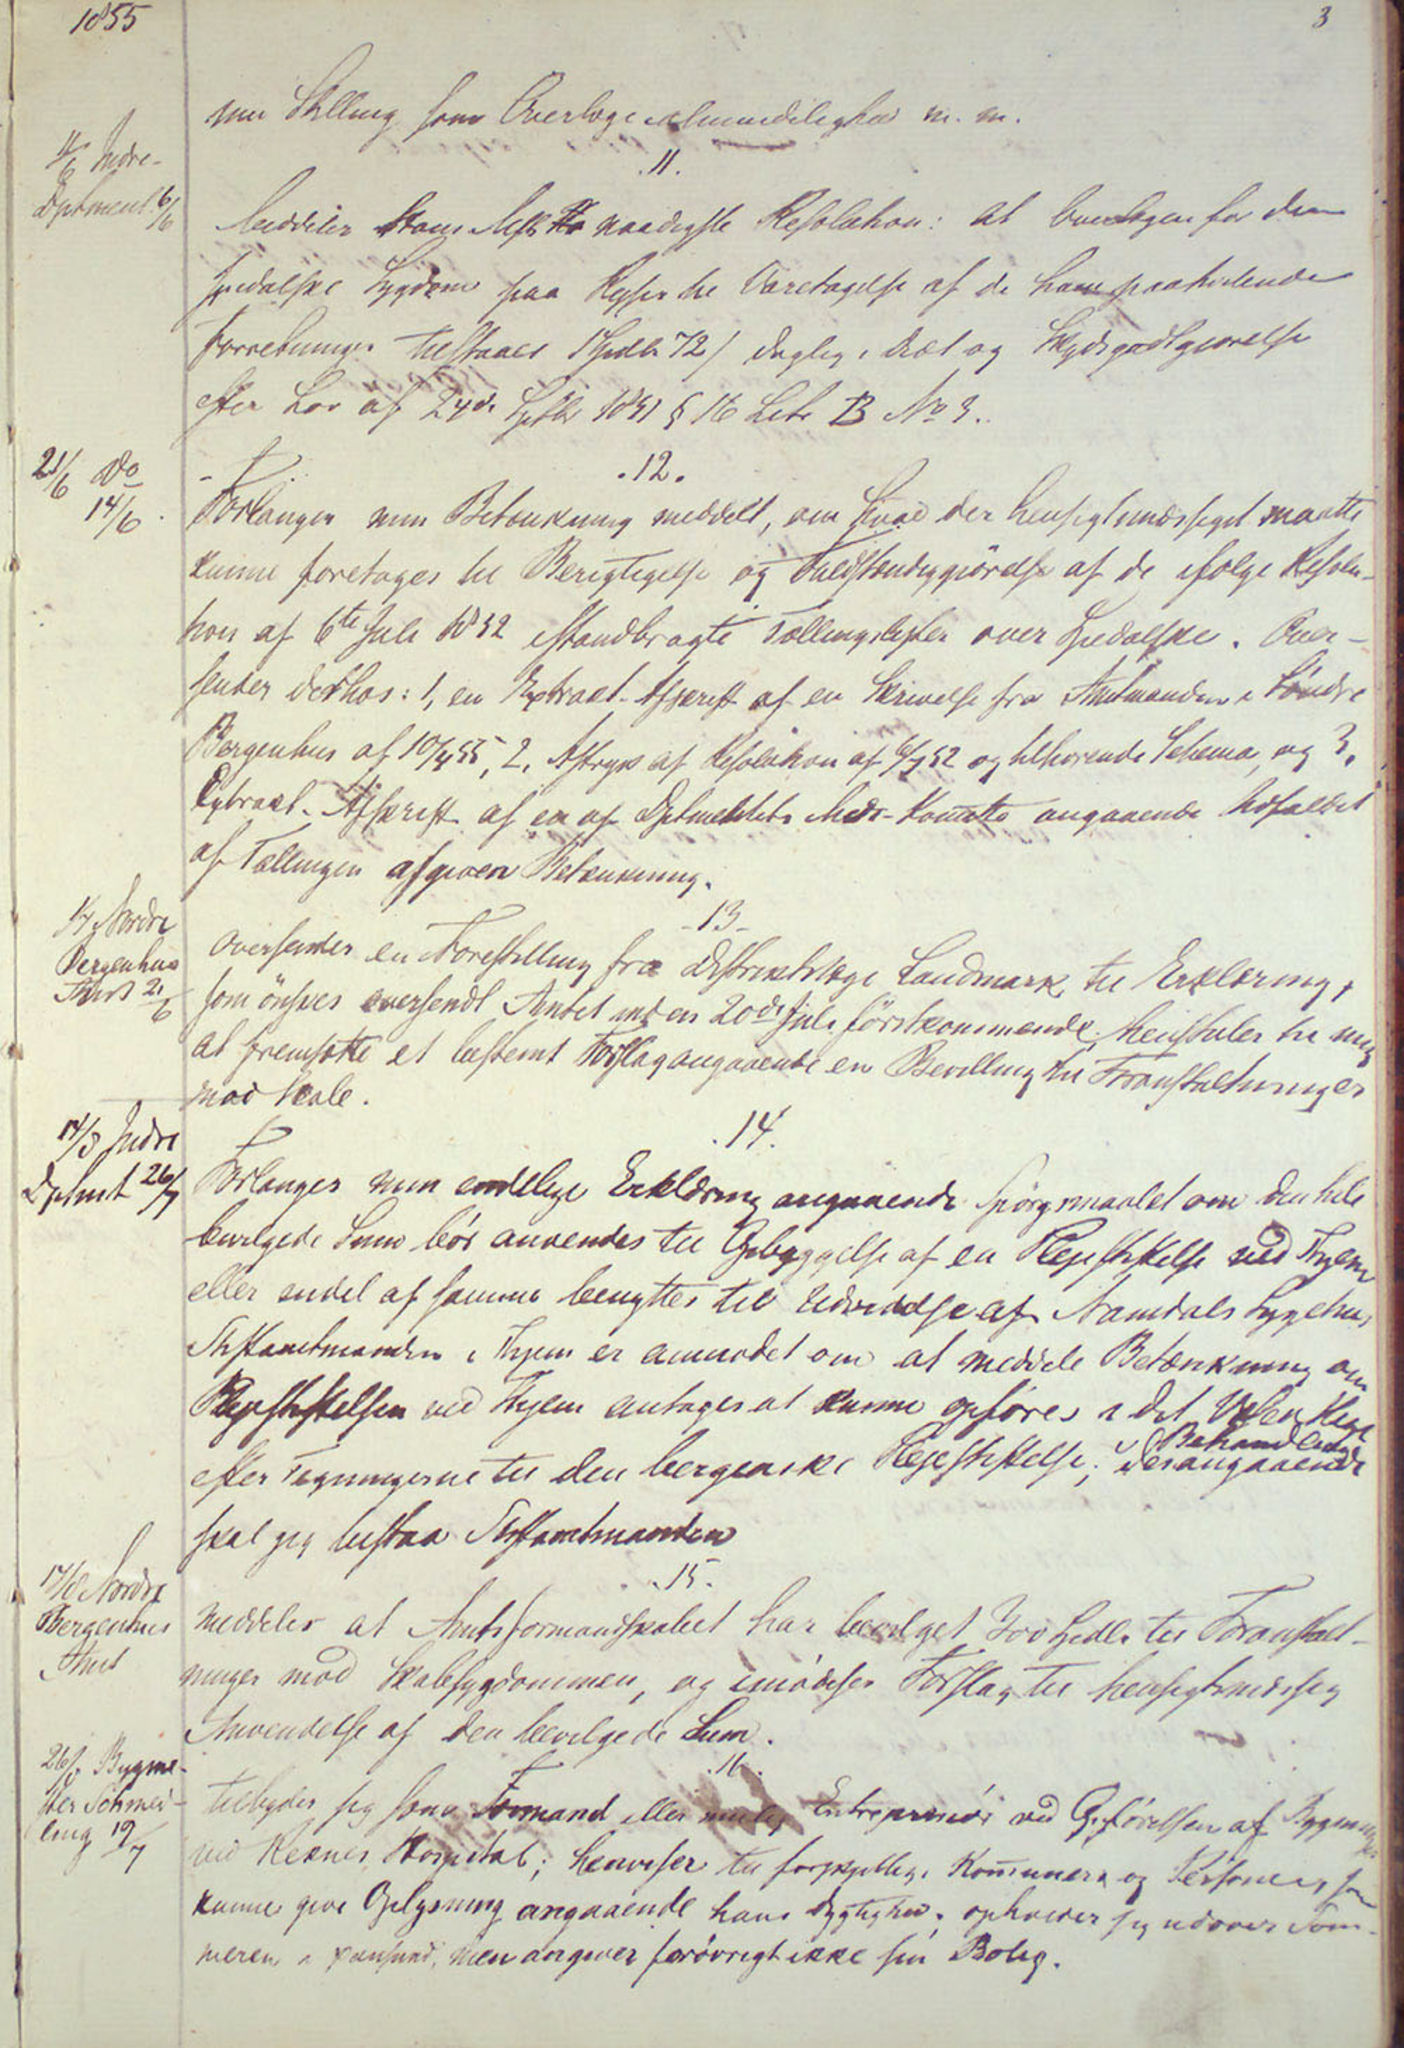 1855
3
min Stilling som Overlæge i Almindelighed m. m.
11/6 Indre-
Dptment 6/6
.11.
Meddeler Hans Mjst naadigste Resolution: at Overlægen for den
spedalske Sygdom paa Rejser til Varetagelse af de ham paahvilende
Forretninger tilstaaes 1 Spdlr 72 / daglig i Diæt og Skydsgodtgjørelse
efter Lov af 24de Septbr 1851 § 16 Litr B No 3.
21/6 Do
14/6
.12.
Forlanger min Betænkning meddelt, om hvad der hensigtsmæssigst maatte
kunne foretages til Berigtigelse og Fuldstændiggjörelse af de ifølge Resolu-
tion af 6te Juli 1852 istandbragte Tællingslister over Spedalske. Over-
sender derhos: 1, en Extract-Afskrift af en Skrivelse fra Amtmanden i Söndre
Bergenhus af 10/4 55, 2, Aftryk af Resolution af 6/7 52 og tilhörende Schema, og 3,
Extract-Afskrift af en af Dptmentets Med-Komite angaaende Udfaldet
af Tællingen afgiven Betænkning.
Nordre
Bergenhus
Amt 21/6
-13-
Oversender en Forestilling fra Distriktslæge Landmark til Erklæring,
som önskes oversendt Amtet inden 20de Juli förstkommende, henstiller til mig
at fremsætte et bestemt Forslag angaaende en Bevilling til Foranstaltninger
mod Skab.
Indre
Dptmt 26/7
.14.
Forlanger min endelige Erklæring angaaende Spörgsmaalet om den hele
bevilgede Sum bör anvendes til Opbyggelse af en Plejestiftelse ved Thjem
eller endel af samme benyttes til Udvidelse af Namdals Sygehus
Stiftamtmanden i Thjem er anmodet om at meddele Betænkning om
Plejestiftelsen ved Thjem antages at kunne opföres i det Væsentlige
efter Tegningerne til den bergenske Plejestiftelse; i Behandlingen desangaaende
skal jeg bistaa Stiftamtmanden
17/8 Nordre
Bergenhus
Amt
.15.
Meddeler at Amtsformandskabet har bevilget 300 Spdlr til Foranstalt-
ninger mod Skabsygdommen, og imödeser Forslag til hensigtsmæssig
Anvendelse af den bevilgede Sum.
Bygme-
ster Schmei-
19/7
.16.
Tilbyder sig som Formand eller mulig Entreprenör ved Opförelsen af Bygninger
ved Reknes Hospital; henviser til forskjellige Kommuner og Personer, som
kunne give Oplysning angaaende hans Dygtighed. opholder sig udover Som-
meren i men angiver forövrigt ikke sin Bolig.